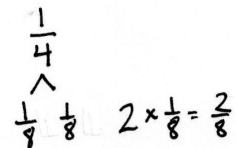 1/4
∧
1/8 1/8 2 × 1/8 = 2/8